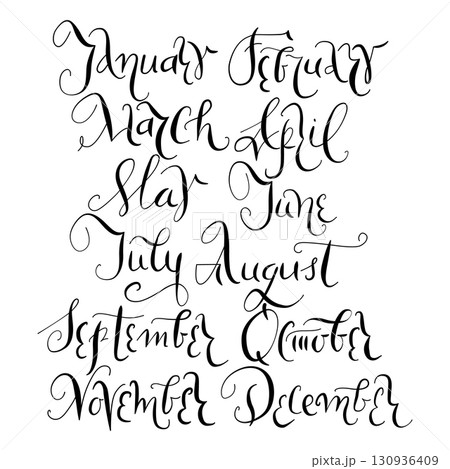 January February
March April
May June
July August
September October
November December
PIXTA
pixtastock.com - 130936409